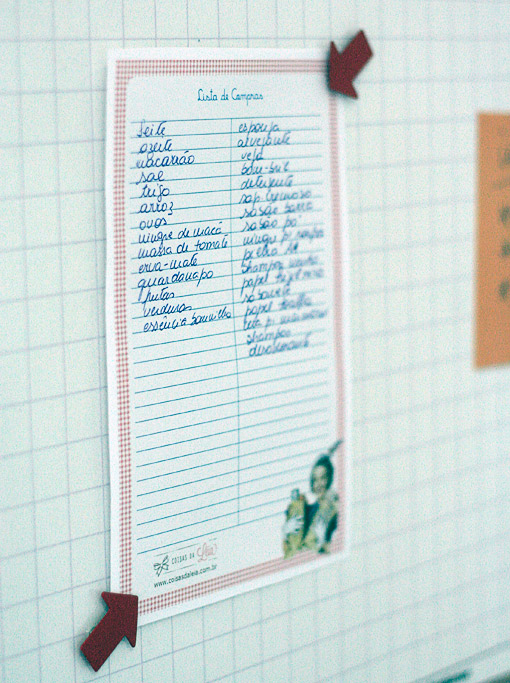 Lista de Compras
leite
azeite
macarrão
sal
trigo
arroz
ovos
vinagre de maçã
massa de tomate
erva-mate
guardanapo
frutas
verduras
essência baunilha
esponja
alvejante
veja
bom-bril
detergente
sap. cremoso
sabão barra
sabão pó
vinagre p/
shampoo
papel
sabonete
papel toalha
shampoo
desodorante
COISAS DA Léia
www.coisasdaleia.com.br